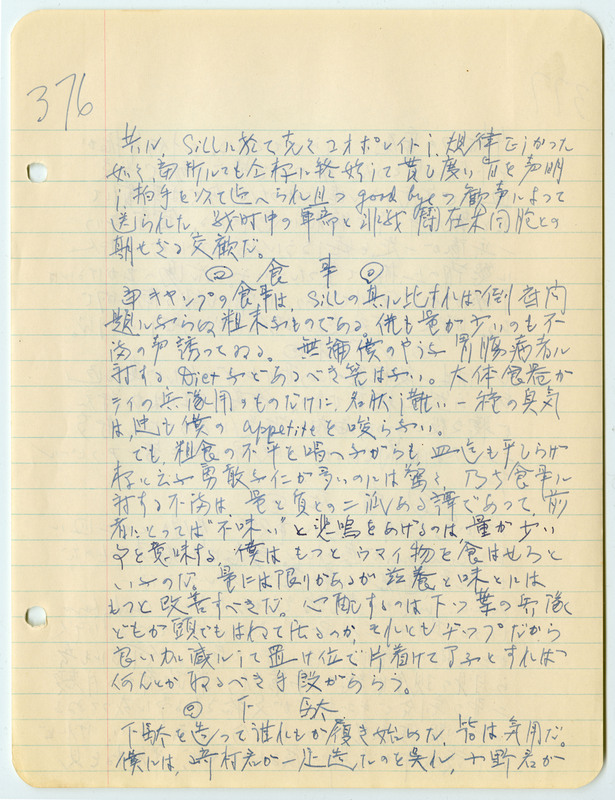 376
共ル、Sillに於て克くコオポレイトし、規律正しかった
如く、当所ルても全様に終始して貰い度い旨を声明
し、拍手を以て迎へられ且つ good byeの歓声によって
送られた。戦時中の軍部と敵 在米同胞との
期せざる交歓だ。
◎ 食 事 ◎
本キャンプの食事は、Sillの其ルに比すれば倒底問
題ルならぬ粗末なものである。併も量が少いのも不
満の声誘ってゐる。無論僕のやうな胃腸病者ル
対するDietなどあるべき筈はない。大体食器が
ライの兵隊用のものだけに、名状し難い一種の臭気
は、迚も僕のappetiteを唆らない。
でも、粗食の不平を唱へながらも皿迄も平らげ
様と云ふ勇敢な仁が多いのには驚く。乃ち食事ル
対する不満は、量と質との二派ある譯であって、前
者にとっては“不味い”と悲鳴をあげるのは量が少い
事を意味する。僕はもっとウマイ物を食はせろと
いふのだ。量には限りがあるが滋養と味とルは
もっと改善すべきだ。心配するのは下ッ葉の兵隊
どもが頭でもはねて居るのか、それともヂップだから
良い加減ルして置け位で片着けて了ふとすれば
何んとかねるべき手段がららう。
◎ 下 駄
下駄を造って誰れもが履き始めた、皆は気用だ。
僕ルは、崎村君が一足造たのを呉れ、小野君が